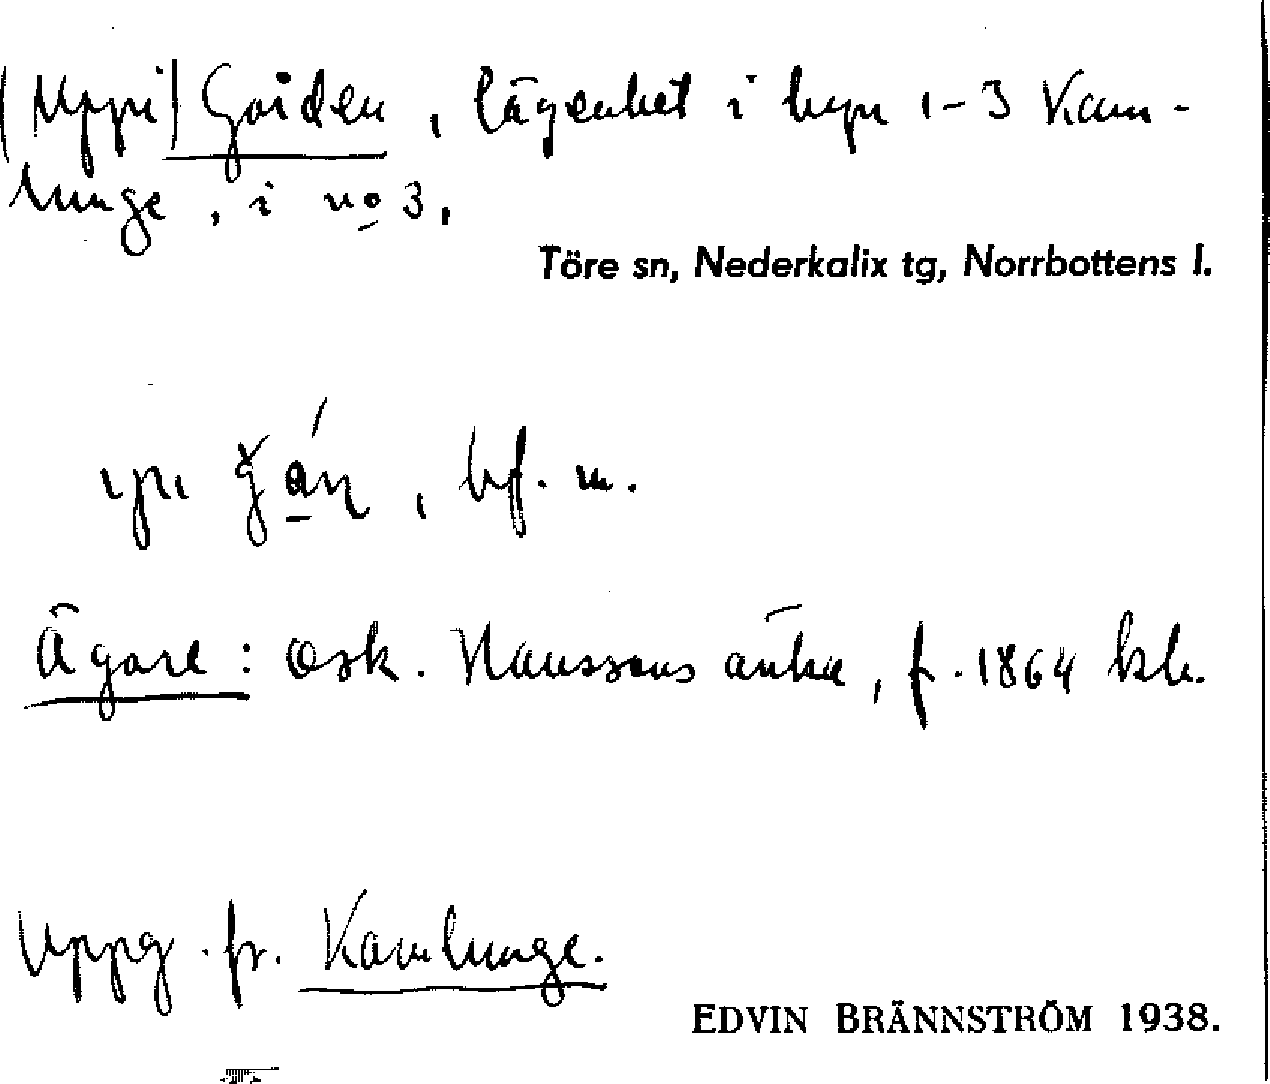 (Uppi) Gården, lägenhet i byn 1-3 Kam-
lunge, i no 3.
Töre sn, Nederkalix tg, Norrbottens l.
, bf. m.
Ägare: Osk. Hanssons änka, f. 1864 blr.
Uppg. fr. Kamlunge.
EDVIN BRÄNNSTRÖM 1938.